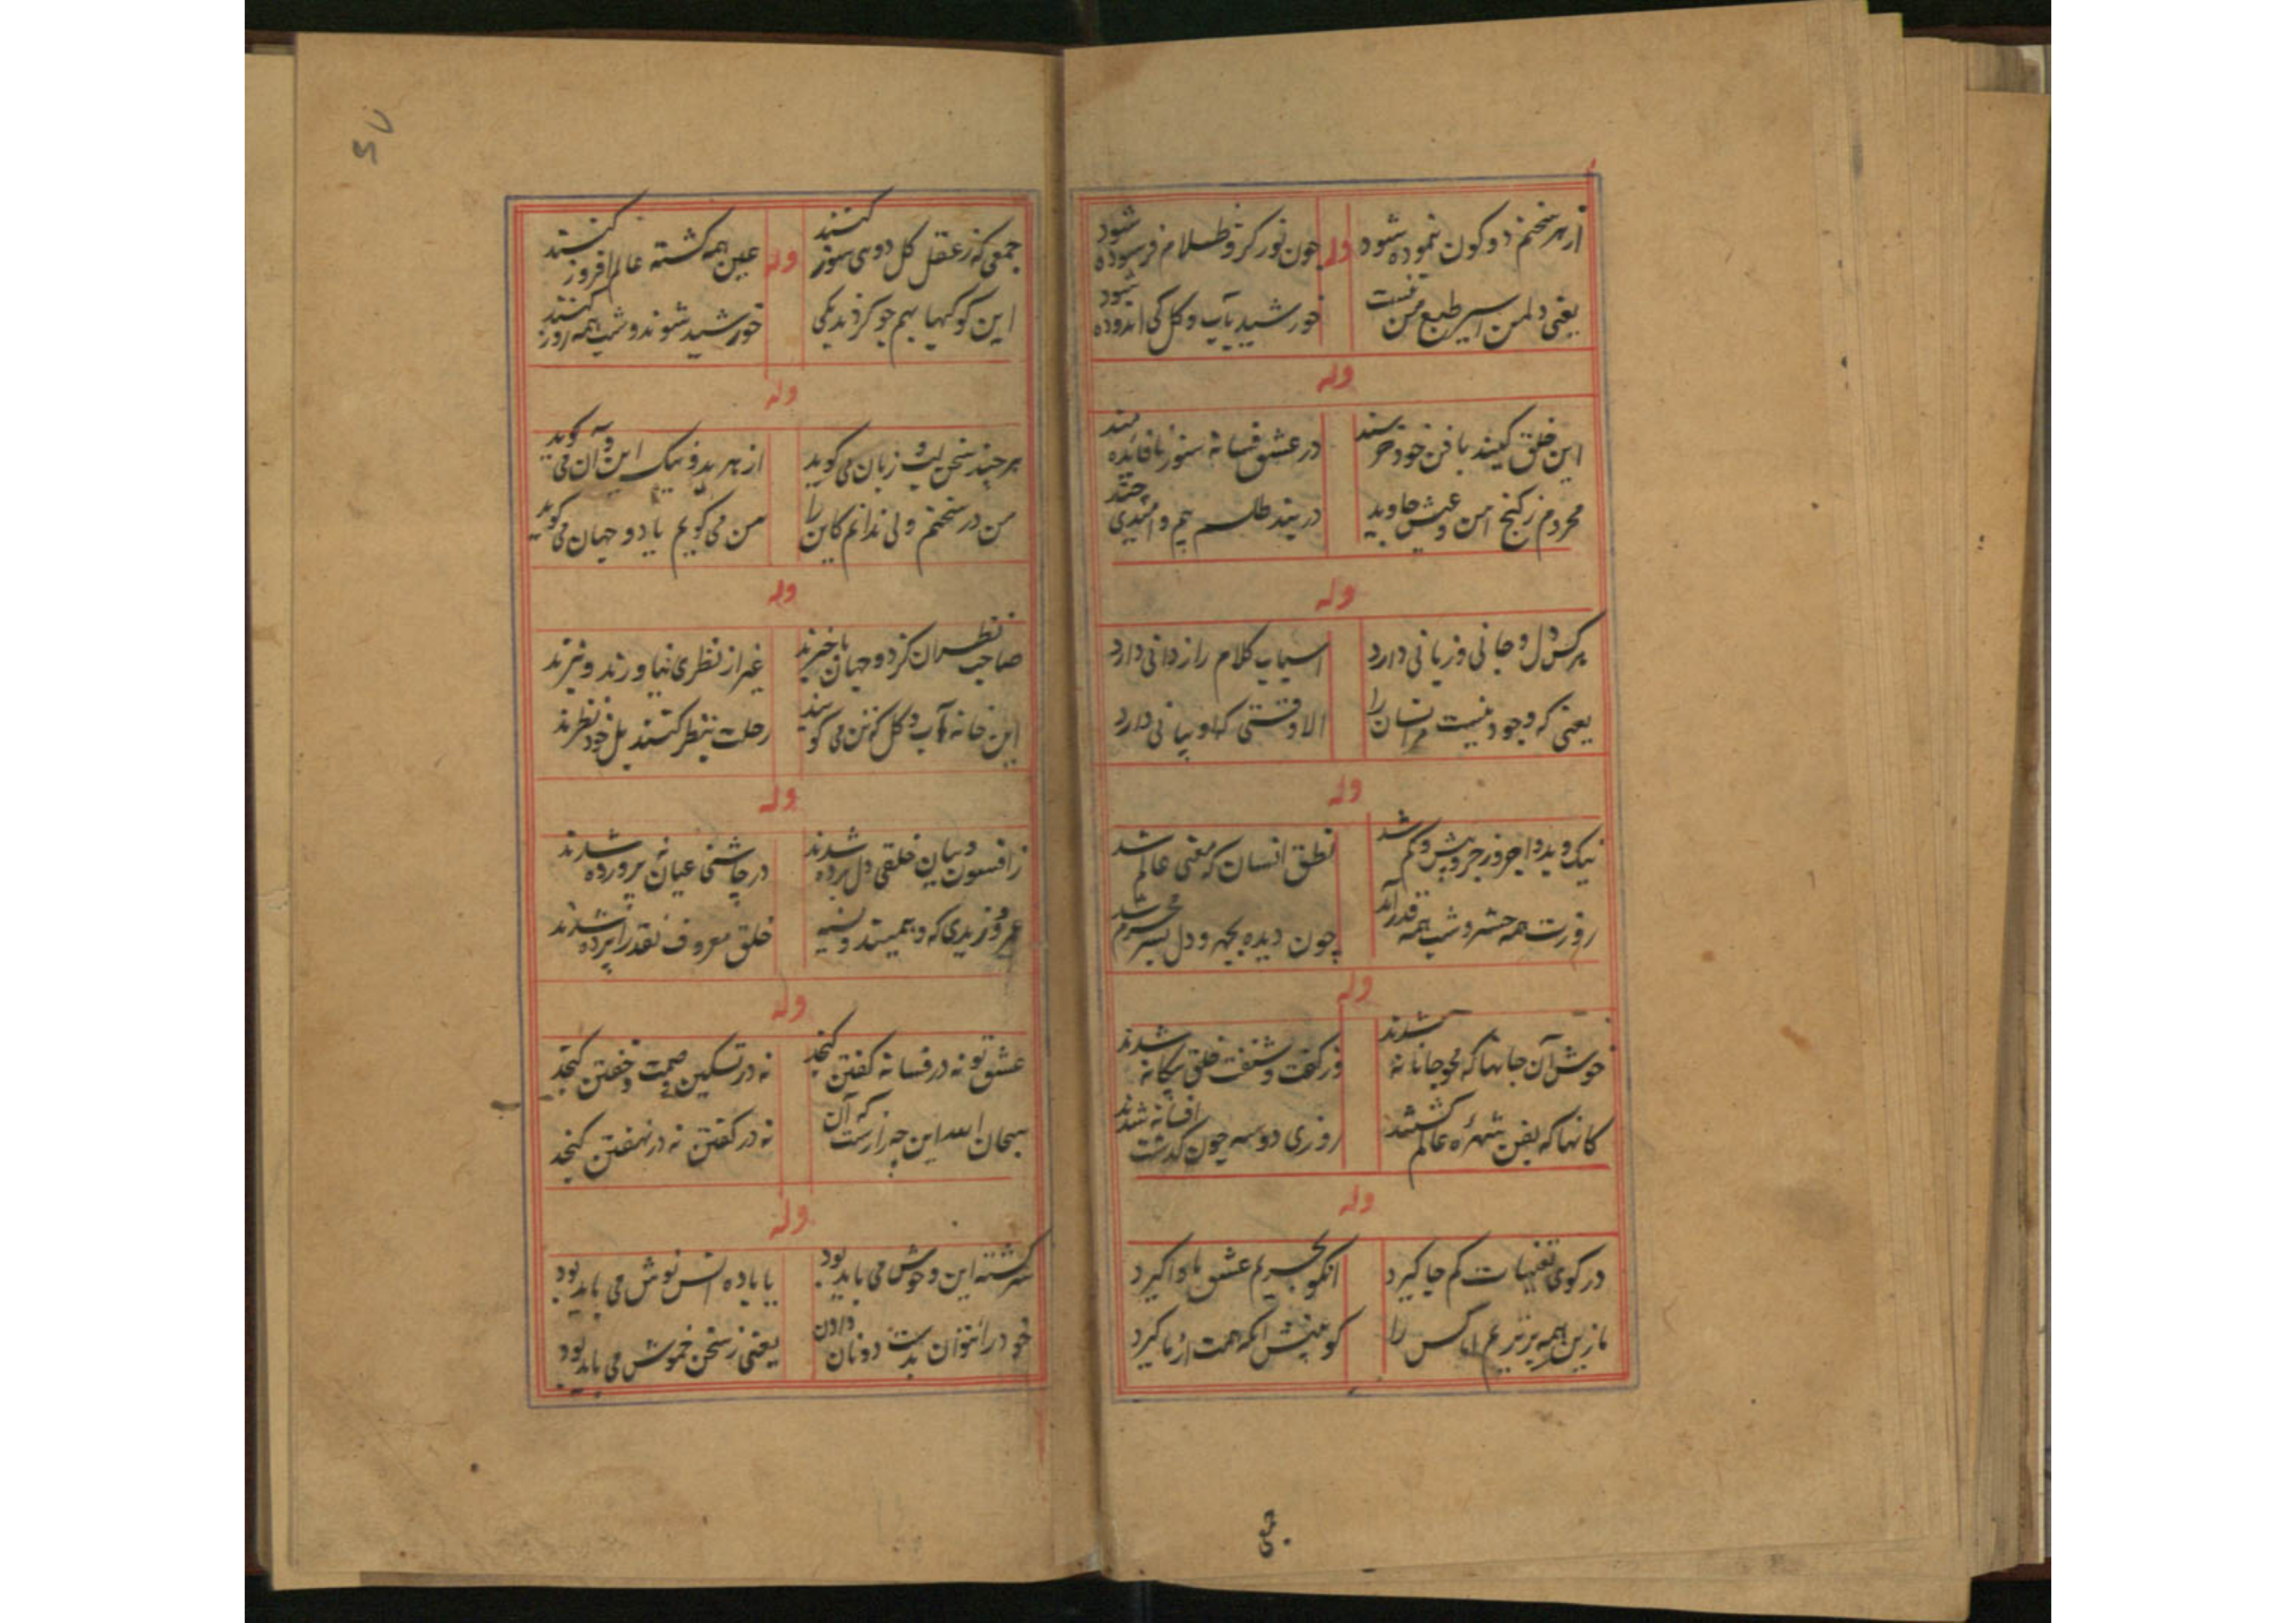 از هر سخنم دو کون نموده شود
وله
چون نور کزو ظلام فرسوده شود
یعنی دلمن اسیر طبع من نیست
خورشید بآب و گل کی اندوده شود
وله
این خلق کیند با فن خود خرسند
در عشق فسانه سنوز نافایده مند
محروم ز کنج امن و عیش جاوید
در بند طلسم بیم و امیدی چند
وله
هر کس دل و جانی و زبانی دارد
اسباب کلام رازدانی دارد
یعنی که وجود نیست مر انسان را
الا وقتی که او بیانی دارد
وله
نیک و بد و اجر و زجر و بیش و کم شد
نطق انسان که معنی عالم شد
روزت همه حشر و شب همه قدر آمد
چون دیده بجهر و دل بسر محرم شد
وله
خوش آن جانها که محو جانانه شدند
وز گفت و شنفت خلق بیگانه شدند
کانها که بفن شهرهٔ عالم گشتند
روزی دو سه چون گذشت افسانه شدند
وله
در کوی تعینات کم جا گیرد
انکو بحریم عشق ماوا گیرد
باز بن همه بر نیر عم ناکس را
کو عیش انکه همت از ما گیرد
جمعی
۶۷
جمعی که ز عقل کل دوسی سوز کنند
وله
عین همه گشته عالم افروز کنند
این کوکبها بهم چو گردید یکی
خورشید شوند و شب همه روز کنند
وله
هر چند سخن لب و زبان می گوید
از هر بد و نیک این و آن می گوید
من در سخنم ولی ندانم کاین را
من می گویم یا دو جهان می گوید
وله
صاحب نظران کز دو جهان باخبرند
غیر از نظری نیاورند و نبرند
این خانه آب و گل که تن می گویند
رحلت بنظر کنند بل خود نظرند
وله
ز افسون و بیان خلقی دل برده شدند
در چاشنی عیان نه پرورده شدند
عمرو و زیدی که وهمیند و نسیه
خلق معروف نقد را پرده شدند
وله
عشق تو نه در فسانه گفتن گنجد
نه در تسکین صمت و خفتن گنجد
سبحان الله این چه رازست که آن
نه در گفتن نه در نهفتن گنجد
وله
سرگشته این وحوش می باید بود
یا باده انس نوش می باید بود
خود را نتوان بدست دونان دادن
یعنی ز سخن خموش می باید بود